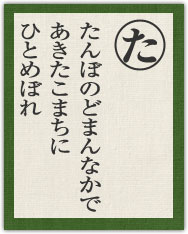 た
たんぼのどまんなかで
あきたこまちに
ひとめぼれ